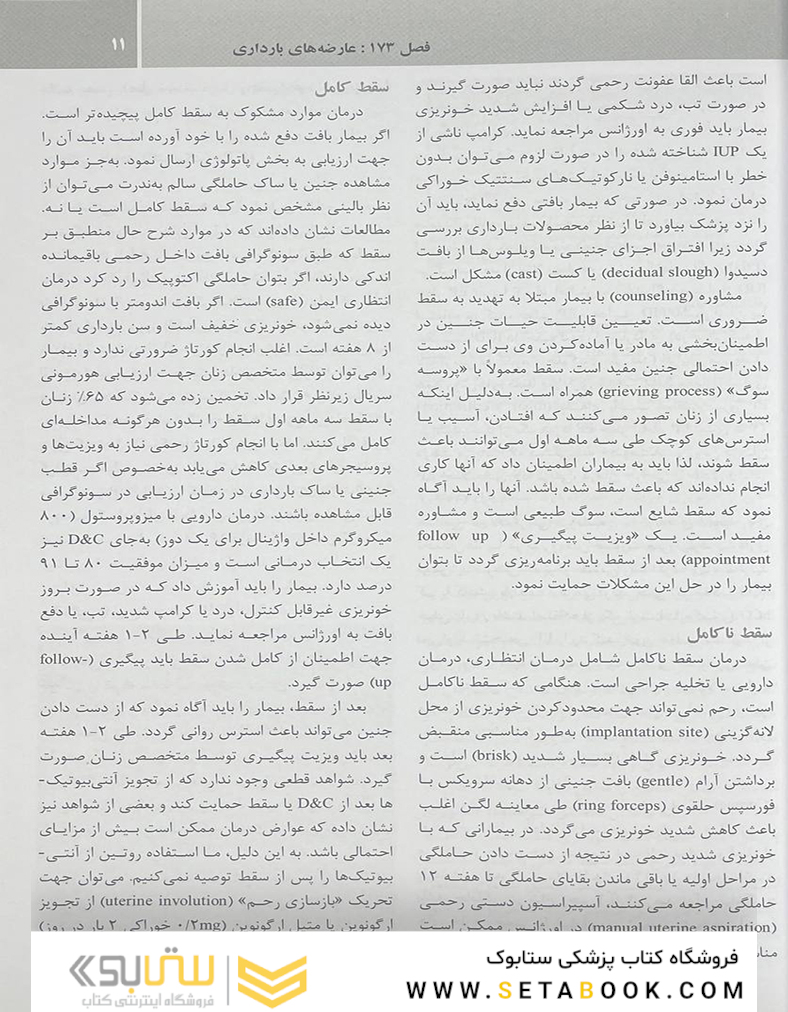 فصل ۱۷۳ : عارضه‌های بارداری
۱۱
است باعث القا عفونت رحمی گردند نباید صورت گیرند و
در صورت تب، درد شکمی یا افزایش شدید خونریزی
بیمار باید فوری به اورژانس مراجعه نماید. کرامپ ناشی از
یک IUP شناخته شده را در صورت لزوم می‌توان بدون
خطر با استامینوفن یا نارکوتیک‌های سنتتیک خوراکی
درمان نمود. در صورتی که بیمار بافتی دفع نماید، باید آن
را نزد پزشک بیاورد تا از نظر محصولات بارداری بررسی
گردد زیرا افتراق اجزای جنینی یا ویلوس‌ها از بافت
دسیدوا (decidual slough) یا کست (cast) مشکل است.
مشاوره (counseling) با بیمار مبتلا به تهدید به سقط
ضروری است. تعیین قابلیت حیات جنین در
اطمینان‌بخشی به مادر یا آماده‌کردن وی برای از دست
دادن احتمالی جنین مفید است. سقط معمولاً با «پروسه
سوگ» (grieving process) همراه است. به‌دلیل اینکه
بسیاری از زنان تصور می‌کنند که افتادن، آسیب یا
استرس‌های کوچک طی سه ماهه اول می‌توانند باعث
سقط شوند، لذا باید به بیماران اطمینان داد که آنها کاری
انجام نداده‌اند که باعث سقط شده باشد. آنها را باید آگاه
نمود که سقط شایع است، سوگ طبیعی است و مشاوره
مفید است. یک «ویزیت پیگیری» (follow up
appointment) بعد از سقط باید برنامه‌ریزی گردد تا بتوان
بیمار را در حل این مشکلات حمایت نمود.
سقط ناکامل
درمان سقط ناکامل شامل درمان انتظاری، درمان
دارویی یا تخلیه جراحی است. هنگامی که سقط ناکامل
است، رحم نمی‌تواند جهت محدودکردن خونریزی از محل
لانه‌گزینی (implantation site) به‌طور مناسبی منقبض
گردد. خونریزی گاهی بسیار شدید (brisk) است و
برداشتن آرام (gentle) بافت جنینی از دهانه سرویکس با
فورسپس حلقوی (ring forceps) طی معاینه لگن اغلب
باعث کاهش شدید خونریزی می‌گردد. در بیمارانی که با
خونریزی شدید رحمی در نتیجه از دست دادن حاملگی
در مراحل اولیه یا باقی ماندن بقایای حاملگی تا هفته ۱۲
حاملگی مراجعه می‌کنند، آسپیراسیون دستی رحمی
(manual uterine aspiration) در اورژانس ممکن است
سقط کامل
درمان موارد مشکوک به سقط کامل پیچیده‌تر است.
اگر بیمار بافت دفع شده را با خود آورده است باید آن را
جهت ارزیابی به بخش پاتولوژی ارسال نمود. به‌جز موارد
مشاهده جنین یا ساک حاملگی سالم به‌ندرت می‌توان از
نظر بالینی مشخص نمود که سقط کامل است یا نه.
مطالعات نشان داده‌اند که در موارد شرح حال منطبق بر
سقط که طبق سونوگرافی بافت داخل رحمی باقیمانده
اندکی دارند، اگر بتوان حاملگی اکتوپیک را رد کرد درمان
انتظاری ایمن (safe) است. اگر بافت اندومتر با سونوگرافی
دیده نمی‌شود، خونریزی خفیف است و سن بارداری کمتر
از ۸ هفته است. اغلب انجام کورتاژ ضرورتی ندارد و بیمار
را می‌توان توسط متخصص زنان جهت ارزیابی هورمونی
سریال زیرنظر قرار داد. تخمین زده می‌شود که ۶۵٪ زنان
با سقط سه ماهه اول سقط را بدون هرگونه مداخله‌ای
کامل می‌کنند. اما با انجام کورتاژ رحمی نیاز به ویزیت‌ها و
پروسیجرهای بعدی کاهش می‌یابد به‌خصوص اگر قطب
جنینی یا ساک بارداری در زمان ارزیابی در سونوگرافی
قابل مشاهده باشند. درمان دارویی با میزوپروستول (۸۰۰
میکروگرم داخل واژینال برای یک دوز) به‌جای D&C نیز
یک انتخاب درمانی است و میزان موفقیت ۸۰ تا ۹۱
درصد دارد. بیمار را باید آموزش داد که در صورت بروز
خونریزی غیرقابل کنترل، درد یا کرامپ شدید، تب، یا دفع
بافت به اورژانس مراجعه نماید. طی ۲-۱ هفته آینده
جهت اطمینان از کامل شدن سقط باید پیگیری (follow-
up) صورت گیرد.
بعد از سقط، بیمار را باید آگاه نمود که از دست دادن
جنین می‌تواند باعث استرس روانی گردد. طی ۲-۱ هفته
بعد باید ویزیت پیگیری توسط متخصص زنان صورت
گیرد. شواهد قطعی وجود ندارد که از تجویز آنتی‌بیوتیک-
ها بعد از D&C یا سقط حمایت کند و بعضی از شواهد نیز
نشان داده که عوارض درمان ممکن است بیش از مزایای
احتمالی باشد. به این دلیل، ما استفاده روتین از آنتی-
بیوتیک‌ها را پس از سقط توصیه نمی‌کنیم. می‌توان جهت
تحریک «بازسازی رحم» (uterine involution) از تجویز
ارگونوین یا متیل ارگونوین (۰/۲mg خوراکی ۲ بار در روز)
فروشگاه کتاب پزشکی ستابوک
WWW.SETABOOK.COM
ستابوک
فروشگاه اینترنتی کتاب